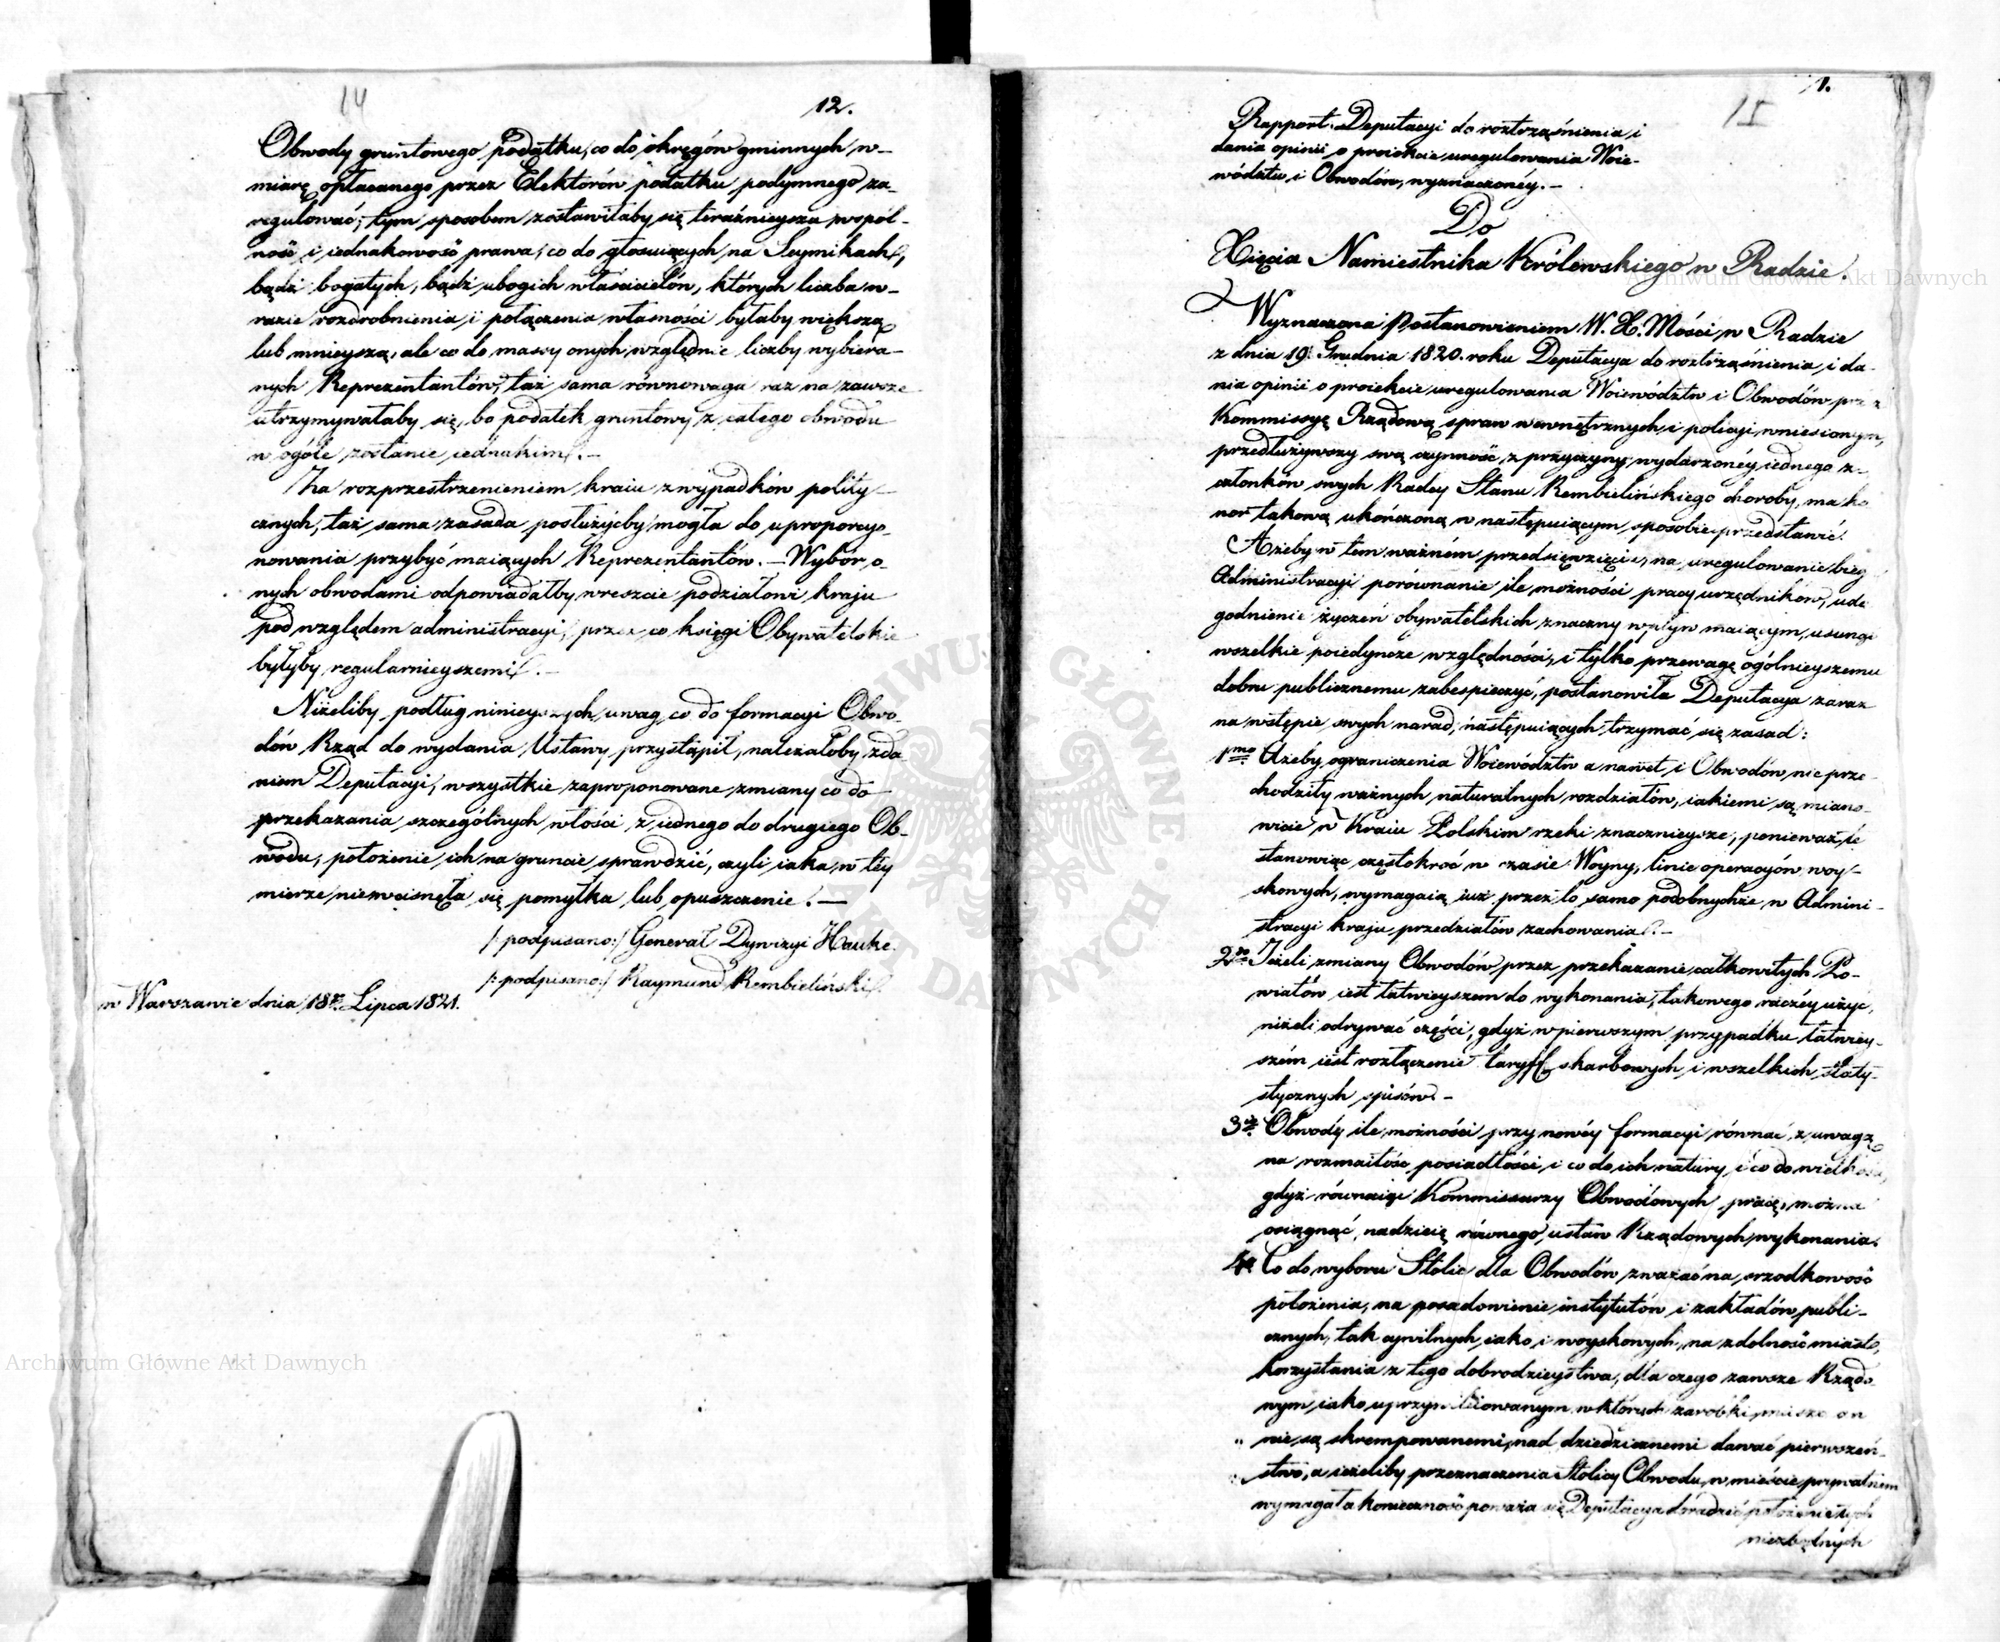 14
12.
Obwody gruntowego podatku, co do okręgów gminnych w-
miarę opłacanego przez Elektorów podatku podymnego za-
regulować; tym sposobem zostawiłaby się teraźnieysza wspól-
ność i iednakowość prawa, co do głosuiących na Seymikach,
bądź bogatych, bądź ubogich właścicielów, których liczba w-
razie rozdrobnienia, i połączenia własności byłaby większą
lub mnieyszą, ale co do massy onych, względnie liczby wybiera-
nych Reprezentantów, taż sama równowaga raz na zawsze
utrzymywałaby się, bo podatek gruntowy z całego obwodu
w ogóle zostanie iednakim. -
Za rozprzestrzenieniem kraiu z wypadków polity-
cznych, taż sama zasada posłużyćby mogła do uproporcyo-
nowania przybyć maiących Reprezentantów. - Wybór o-
nych obwodami odpowiadałby wreszcie podziałowi kraju
pod względem administracyi, przez co księgi Obywatelskie
byłyby regularnieyszemi. -
Niżeliby podług ninieyszych uwag co do formacyi Obwo-
dów Rząd do wydania Ustawy przystąpił, należałoby zda-
niem Deputacyi, wszystkie zaproponowane zmiany co do
przekazania szczególnych włości z iednego do drugiego Ob-
wodu, położenie ich na gruncie sprawdzić, czyli iaka w tey
mierze niewcisnęła się pomyłka lub opuszczenie. -
/:podpisano:/ Generał Dywizyi Hauke.
/:podpisano:/ Raymund Rembieliński.
w Warszawie dnia 18go Lipca 1821.
15
1.
Rapport Deputacyi do roztrząśnienia i
dania opinii o proiekcie uregulowania Woie-
wództw i Obwodów, wyznaczonéy. -
Do
Xięcia Namiestnika Królewskiego w Radzie.
Wyznaczona Postanowieniem W. X. Mości w Radzie
z dnia 19. Grudnia 1820. roku Deputacya do roztrząśnienia, i da-
nia opinii o proiekcie uregulowania Woiewództw i Obwodów przez
Kommissyę Rządową spraw wewnętrznych i policyi wniesionym,
przedłużywszy swą czynność z przyczyny wydarzonéy iednego z-
członków swych Radcy Stanu Rembielińskiego choroby, ma ho
nor takową ukończoną w następuiącym sposobie przedstawić.
Ażeby w tem ważném przedsięwzięciu, na uregulowanie bieg
Administracyi porównanie ile możności pracy urzędników, udo
godnienie życzeń obywatelskich znaczny wpływ maiącym, usunąć
wszelkie poiedyncze względności, i tylko przewagę ogólnieyszemu
dobru publicznemu zabespieczyć, postanowiła Deputacya zaraz
na wstępie swych narad, następuiących trzymać się zasad:
1mo Ażeby ograniczenia Woiewództw a nawet i Obwodów nie prze-
chodziły ważnych naturalnych rozdziałów, iakiemi są miano-
wicie w Kraiu Polskim rzeki znacznieysze, ponieważ te
stanowiąc częstokroć w czasie Woyny, linie operacyów woy-
skowych, wymagaią iuż przez to samo podobnychże w Admini-
stracyi kraju przedziałów zachowania. -
2do Jeżeli zmiany Obwodów przez przekazanie całkowitych Po-
wiatów iest łatwieyszem do wykonania, takowego raczéy użyć,
niżeli odrywać części, gdyż w pierwszym przypadku łatwiey-
szém iest rozłączenie taryff skarbowych, i wszelkich staty-
stycznych spisów. -
3tio Obwody ile możności przy nowéy formacyi równać, z uwagą
na rozmaitość posiadłości i co do ich natury, i co do wielkości,
gdyż równaiąc Kommissarzy Obwodowych pracę, można
osiągnąć nadzieię równego ustaw Rządowych wykonania.
4to Co do wyboru Stolic dla Obwodów zważać na srzodkowość
położenia, na posadowienie instytutów i zakładów publi-
cznych, tak cywilnych, iako i woyskowych, na zdolność miasta
korzystania z tego dobrodzieystwa, dla czego zawsze Rządo-
wym, iako uprzywileiowanym, w których zarobki
nie są skrempowanemi, nad dziedzicznemi dawać pierwszeń-
stwo, a ieżeliby przeznaczenia Stolicy Obwodu w mieście prywatnem
wymagała konieczność poważa się Deputacya doradzić położenie tych
niezbędnych
Archiwum Główne Akt Dawnych
Archiwum Główne Akt Dawnych
ARCHIWUM GŁÓWNE AKT DAWNYCH